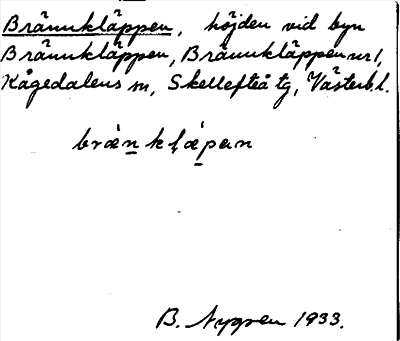 Brännkläppen, höjden vid byn
Brännkläppen, Brännkläppen nr 1,
Kågedalens sn, Skellefteå tg, Västerb. l.
bræ̀n̲klæ̀p̲en
B. Nygren 1933.